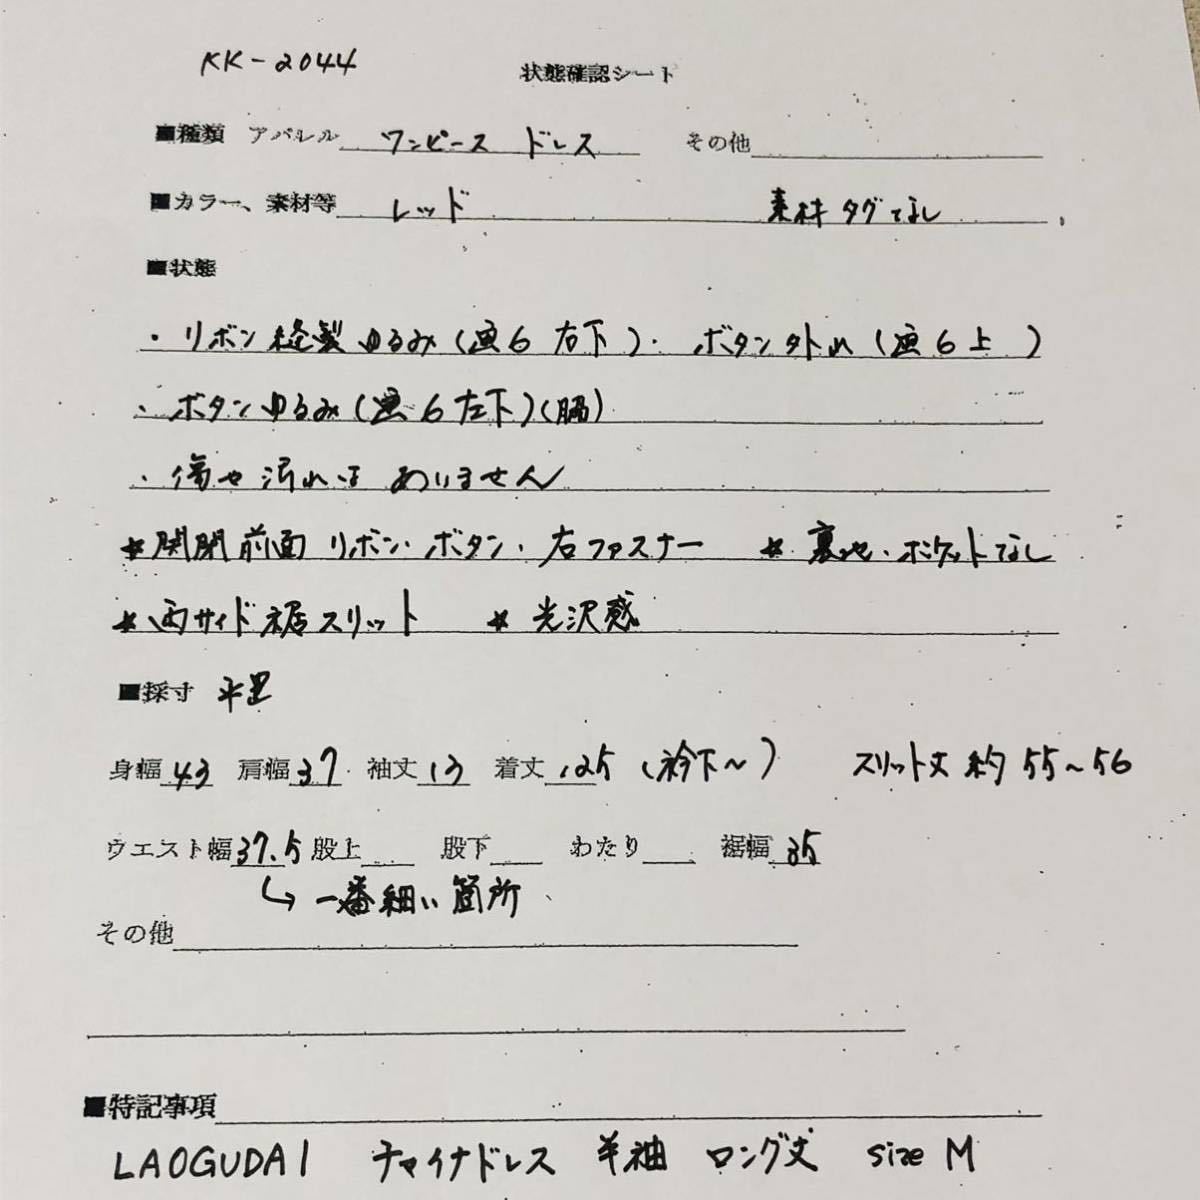 KK-2044
状態確認シート
■種類 アパレル ワンピース ドレス その他
■カラー、素材等 レッド 素材タグなし
■状態
・リボン縫製ゆるみ(画6 右下)・ ボタン外れ(画6上)
・ボタンゆるみ(画6左下)(脇)
・傷や汚れはありません
★開閉前面リボン・ボタン・右ファスナー ★裏地・ポケットなし
★両サイド裾スリット ★光沢感
■採寸 平置
身幅43 肩幅37 袖丈13 着丈125(衿下~) スリット丈 約55~56
ウエスト幅37.5 股上 股下 わたり 裾幅35
↳一番細い箇所
その他
■特記事項
LAOGUDAI チャイナドレス 半袖 ロング丈 size M